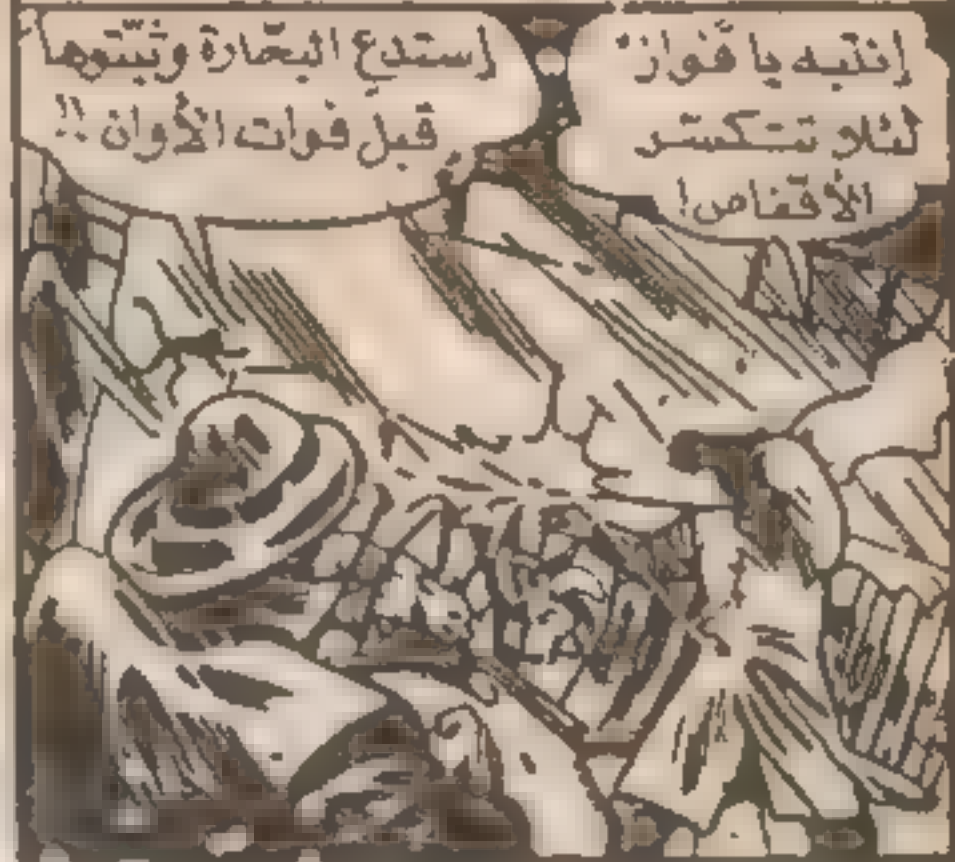 إنتبه يا فواز
لئلا تتكسّر
الأقفاص!
إستدعِ البحّارة وثبّتوها
قبل فوات الأوان !!